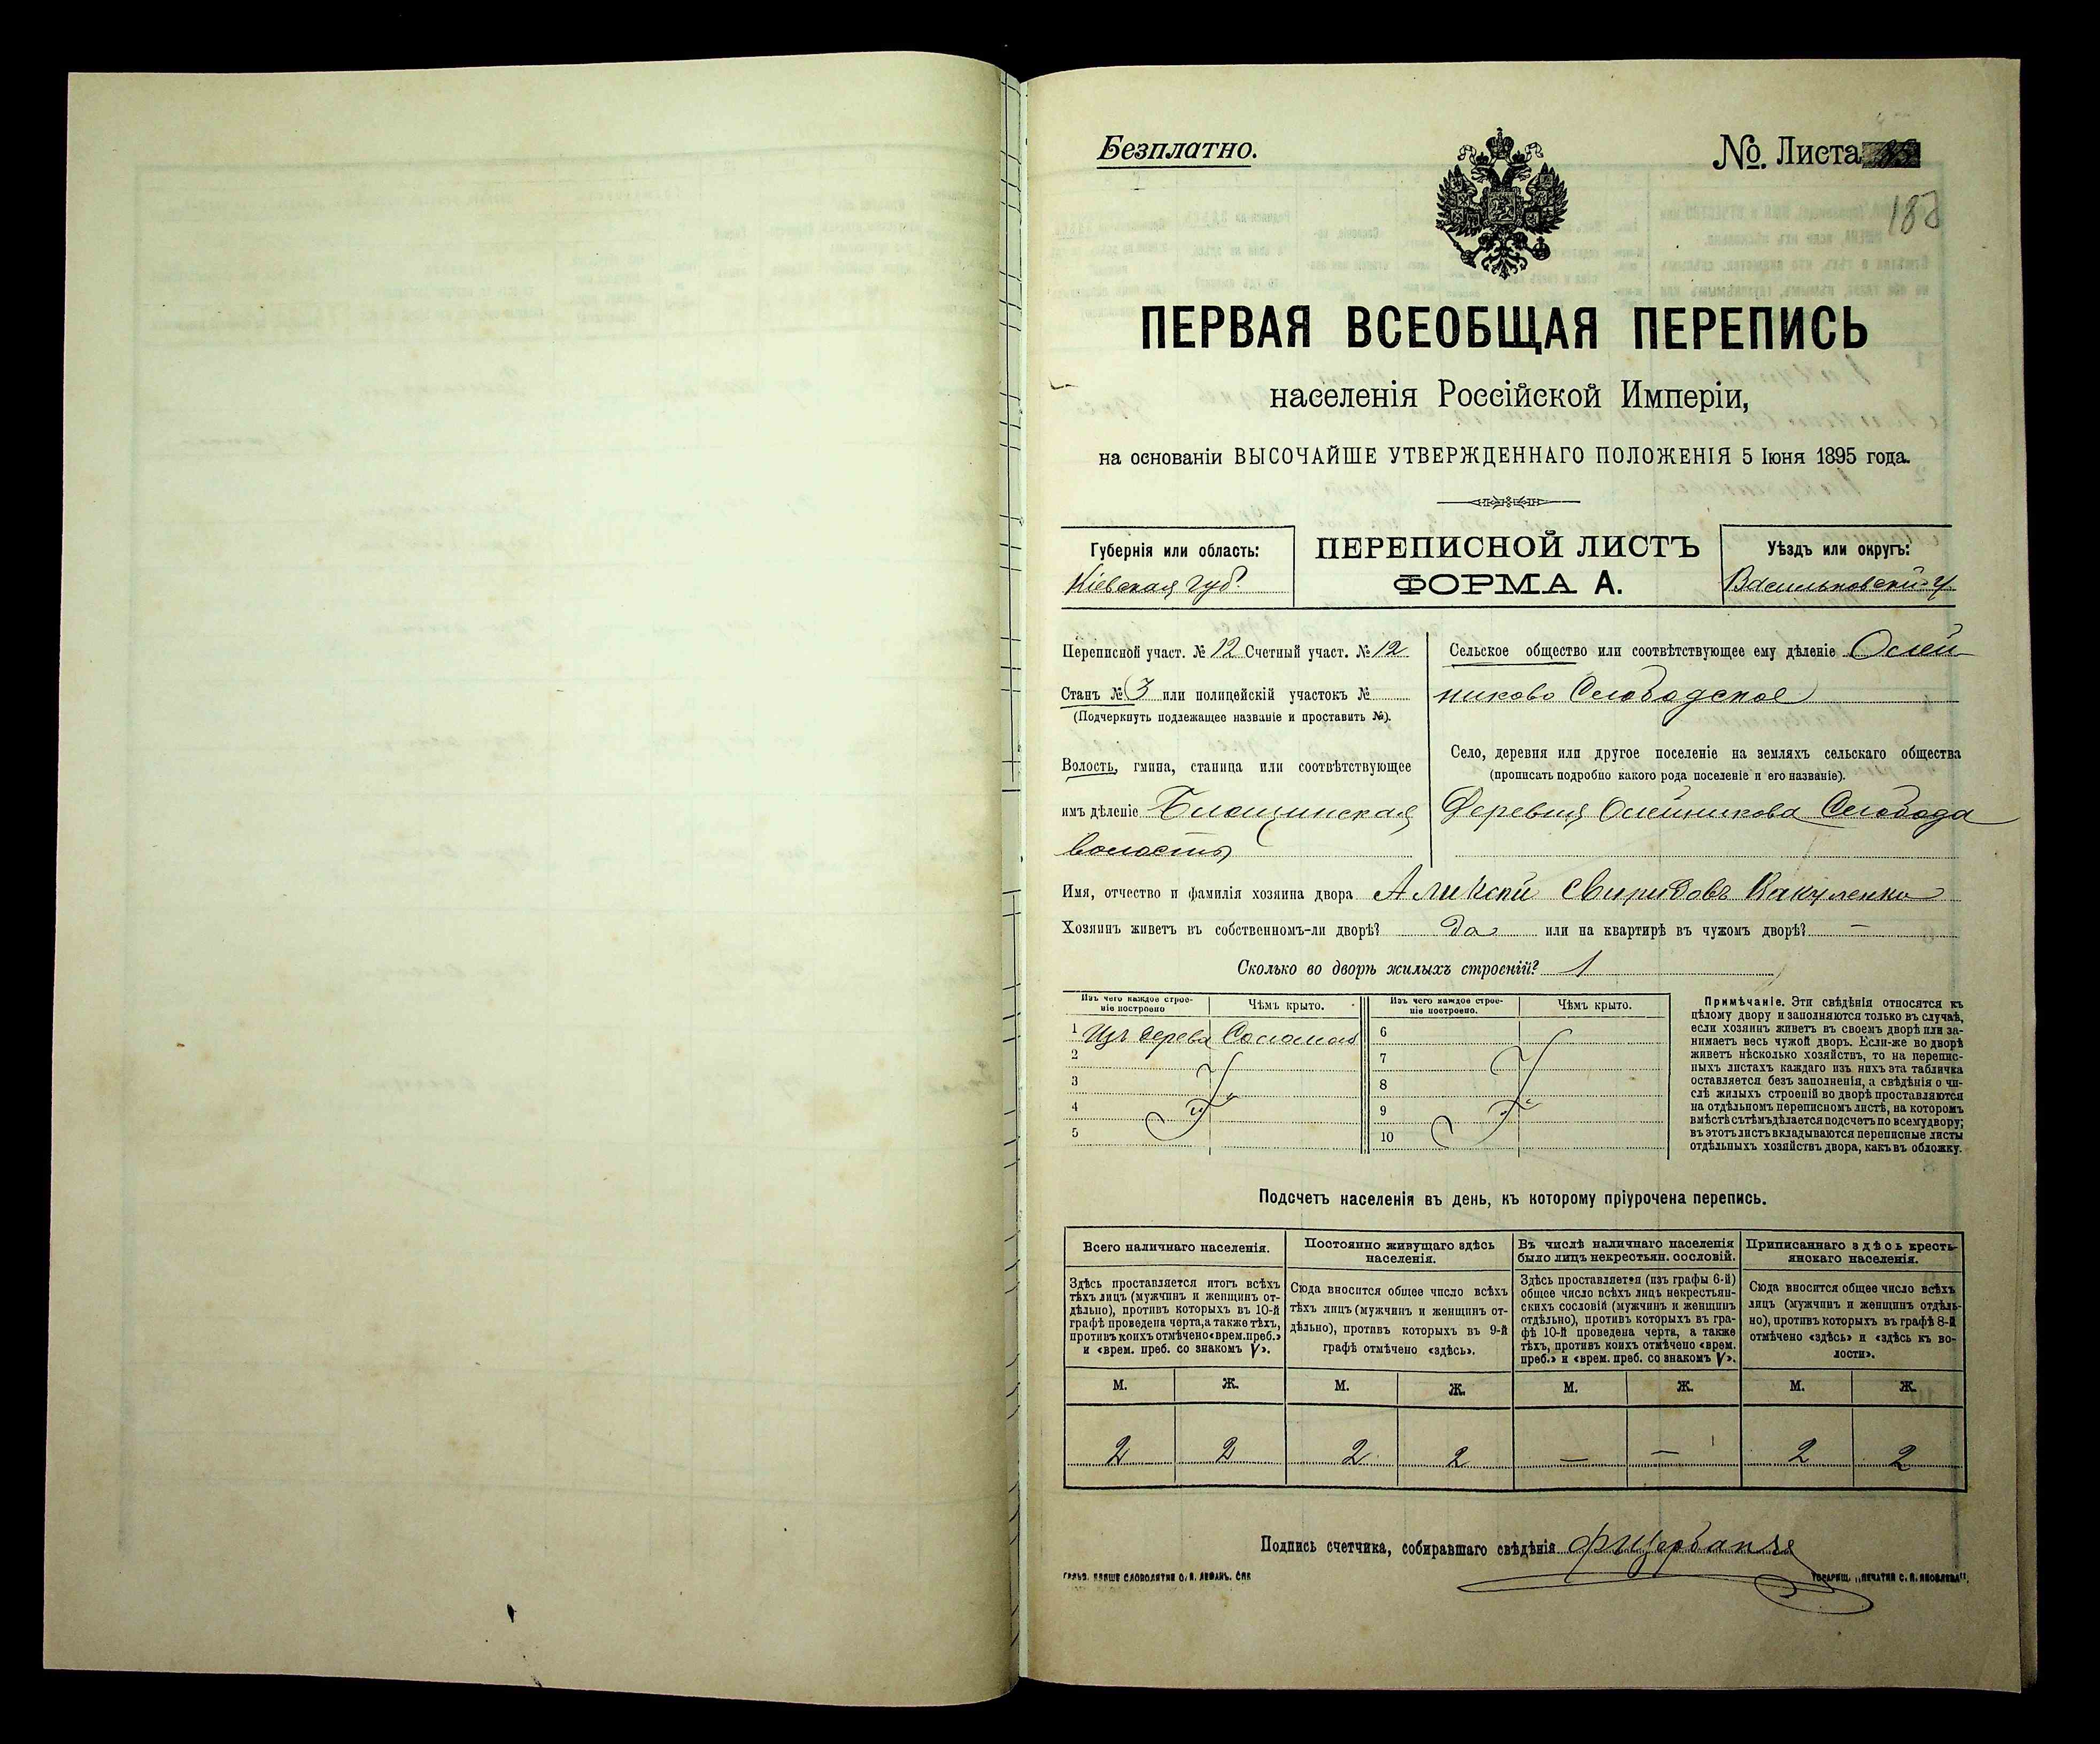 Безплатно.
№. Листа
188
ПЕРВАЯ ВСЕОБЩАЯ ПЕРЕПИСЬ
населенія Россійской Имперіи,
на основаніи ВЫСОЧАЙШЕ УТВЕРЖДЕННАГО ПОЛОЖЕНІЯ 5 Іюня 1895 года.
Губернія или область:
Кіевская губ.
ПЕРЕПИСНОЙ ЛИСТЪ
ФОРМА А.
Уѣздъ или округъ:
Васильковскій у
Переписной участ. № 12 Счетный участ. № 12
Станъ № 3 или полицейскій участокъ №
(Подчеркнуть подлежащее названіе и проставить №).
Волость, гмина, станица или соотвѣтствующее
имъ дѣленіе Блощинская
волость
Сельское общество или соотвѣтствующее ему дѣленіе Олей-
никово Слободское
Село, деревня или другое поселеніе на земляхъ сельскаго общества
(прописать подробно какого рода поселеніе и его названіе).
Деревня Олейникова Слобода
Имя, отчество и фамилія хозяина двора Алексѣй Свиридовъ Вакуленко
Хозяинъ живетъ въ собственномъ-ли дворѣ? да или на квартирѣ въ чужомъ дворѣ? —
Сколько во дворѣ жилыхъ строеній? 1
Изъ чего каждое строе-
ніе построено
Чѣмъ крыто.
Изъ чего каждое строе-
ніе построено.
Чѣмъ крыто.
1 Изъ дерева Соломой
2
3
4
5
6
7
8
9
10
Примѣчаніе. Эти свѣдѣнія относятся къ
цѣлому двору и заполняются только въ случаѣ,
если хозяинъ живетъ въ своемъ дворѣ или за-
нимаетъ весь чужой дворъ. Если-же во дворѣ
живетъ нѣсколько хозяйствъ, то на перепис-
ныхъ листахъ каждаго изъ нихъ эта табличка
оставляется безъ заполненія, а свѣдѣнія о чи-
слѣ жилыхъ строеній во дворѣ проставляются
на отдѣльномъ переписномъ листѣ, на которомъ
вмѣстѣ съ тѣмъ дѣлается подсчетъ по всему двору;
въ этотъ листъ вкладываются переписные листы
отдѣльныхъ хозяйствъ двора, какъ въ обложку.
Подсчетъ населенія въ день, къ которому пріурочена перепись.
Всего наличнаго населенія.
Здѣсь проставляется итогъ всѣхъ
тѣхъ лицъ (мужчинъ и женщинъ от-
дѣльно), противъ которыхъ въ 10-й
графѣ проведена черта, а также тѣхъ,
противъ коихъ отмѣчено «врем. преб.»
и «врем. преб. со знакомъ V».
Постоянно живущаго здѣсь
населенія.
Сюда вносится общее число всѣхъ
тѣхъ лицъ (мужчинъ и женщинъ от-
дѣльно), противъ которыхъ въ 9-й
графѣ отмѣчено «здѣсь».
Въ числѣ наличнаго населенія
было лицъ некрестьян. сословій.
Здѣсь проставляется (изъ графы 6-й)
общее число всѣхъ лицъ некрестьян-
скихъ сословій (мужчинъ и женщинъ
отдѣльно), противъ которыхъ въ гра-
фѣ 10-й проведена черта, а также
тѣхъ, противъ коихъ отмѣчено «врем.
преб.» и «врем. преб. со знакомъ V».
Приписаннаго здѣсь кресть-
янскаго населенія.
Сюда вносится общее число всѣхъ
лицъ (мужчинъ и женщинъ отдѣль-
но), противъ которыхъ въ графѣ 8-й
отмѣчено «здѣсь» и «здѣсь къ во-
лости».
М. Ж. М. Ж. М. Ж. М. Ж.
2 2 2 2 — — 2 2
Подпись счетчика, собиравшаго свѣдѣнія ФЩербанъ
СЛОВОЛИТНЯ О. И. ЛЕМАНЪ. СПБ
ТОВАРИЩ. „ПЕЧАТНЯ С. П. ЯКОВЛЕВА".